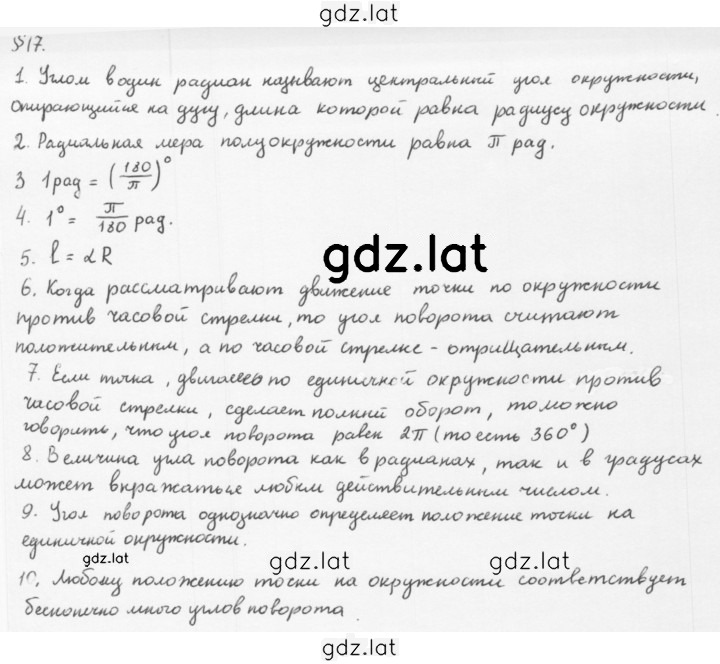 gdz.lat
§17.
1. Углом в один радиан называют центральный угол окружности,
опирающийся на дугу, длина которой равна радиусу окружности.
2. Радиальная мера полуокружности равна π рад.
3 1рад = (180/π)°
4. 1° = π/180 рад.
gdz.lat
5. l = αR
6. Когда рассматривают движение точки по окружности
против часовой стрелки, то угол поворота считают
положительным, а по часовой стрелке - отрицательным.
7. Если точка, двигаясь по единичной окружности против
часовой стрелки, сделает полный оборот, то можно
говорить, что угол поворота равен 2π (то есть 360°)
8. Величина угла поворота как в радианах, так и в градусах
может выражаться любым действительным числом.
9. Угол поворота однозначно определяет положение точки на
единичной окружности.
gdz.lat gdz.lat
10. Любому положению точки на окружности соответствует
бесконечно много углов поворота.
gdz.lat gdz.lat